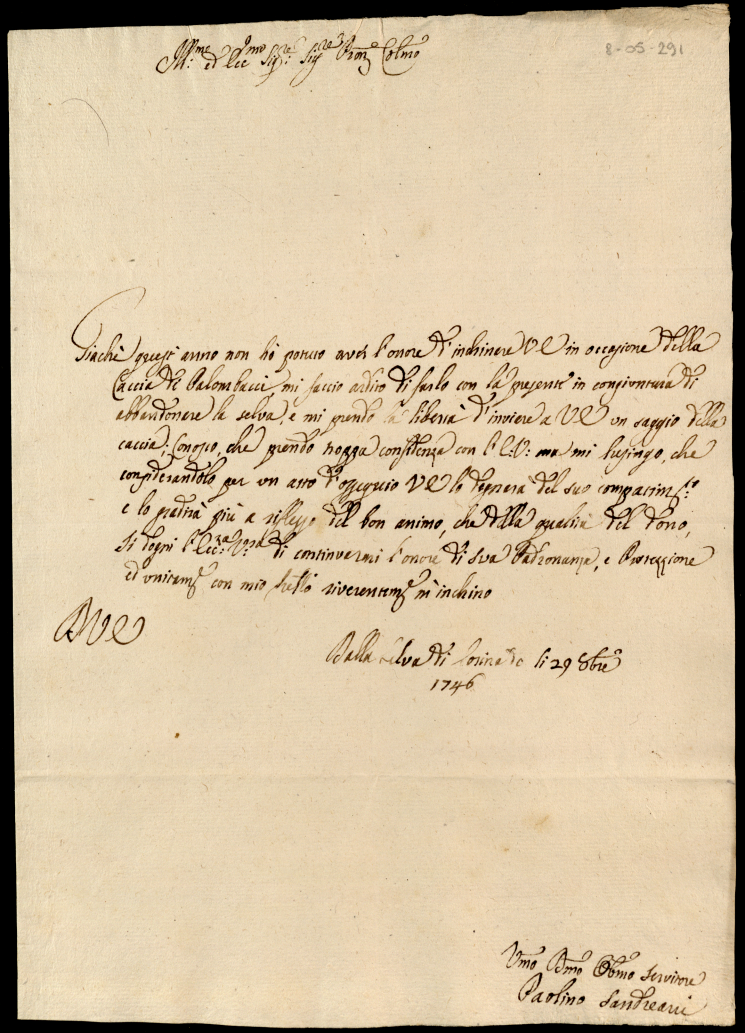 Ill:mo ed Ecc:mo Sig:re Sig:re Pron Colmo
8-05-291
Giachè quest'anno non hò potuto aver l'onore d'inchinare VE in occasione della
Caccia de Palombacci, mi faccio ardito di farlo con la presente in congiuntura di
abbandonare la selva, e mi prendo la libertà d'inviare a VE un saggio della
caccia; Conosco, che prendo troppa confidenza con l'E:V: ma mi lusingo, che
considerandolo per un atto d'ossequio VE lo degnarà del suo compatim:to
e lo gradirà più a riflesso del bon animo, che della qualità del dono,
Si degni l'Ecc:za Vostra di continuarmi l'onore di sua Padronanza, e Protezzione
ed unitam:te con mio frello riverentem:te m'inchino
DVE
Dalla selva di li 29 8bre
1746
Vmo Dmo Obmo Servitore
Paolino Sandreani